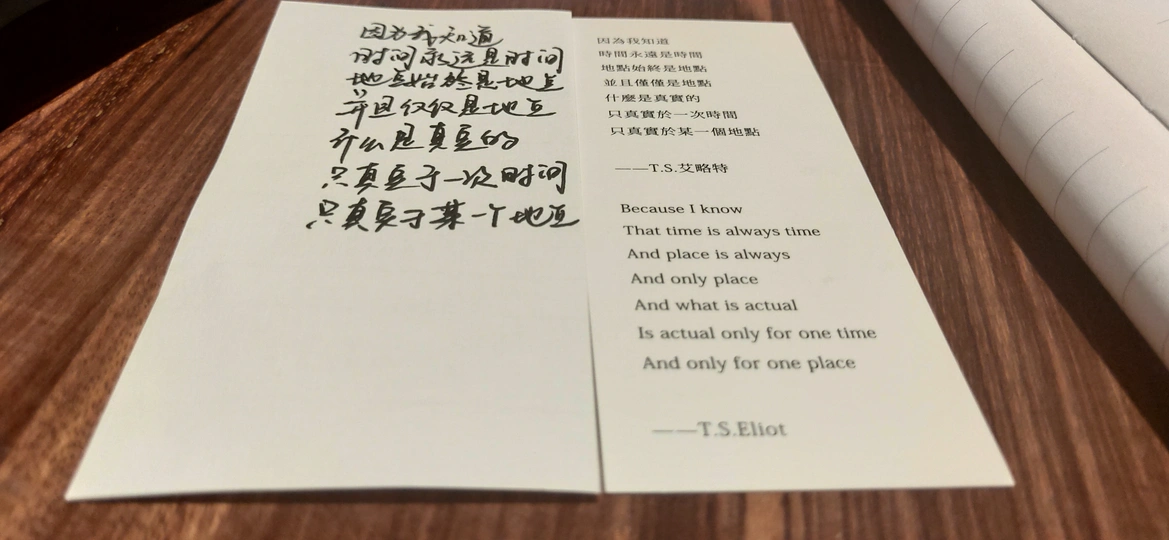 因为我知道
时间永远是时间
地点始终是地点
并且仅仅是地点
什么是真实的
只真实于一次时间
只真实于某一个地点
因為我知道
時間永遠是時間
地點始終是地點
並且僅僅是地點
什麼是真實的
只真實於一次時間
只真實於某一個地點
——T.S.艾略特
Because I know
That time is always time
And place is always
And only place
And what is actual
Is actual only for one time
And only for one place
——T.S.Eliot